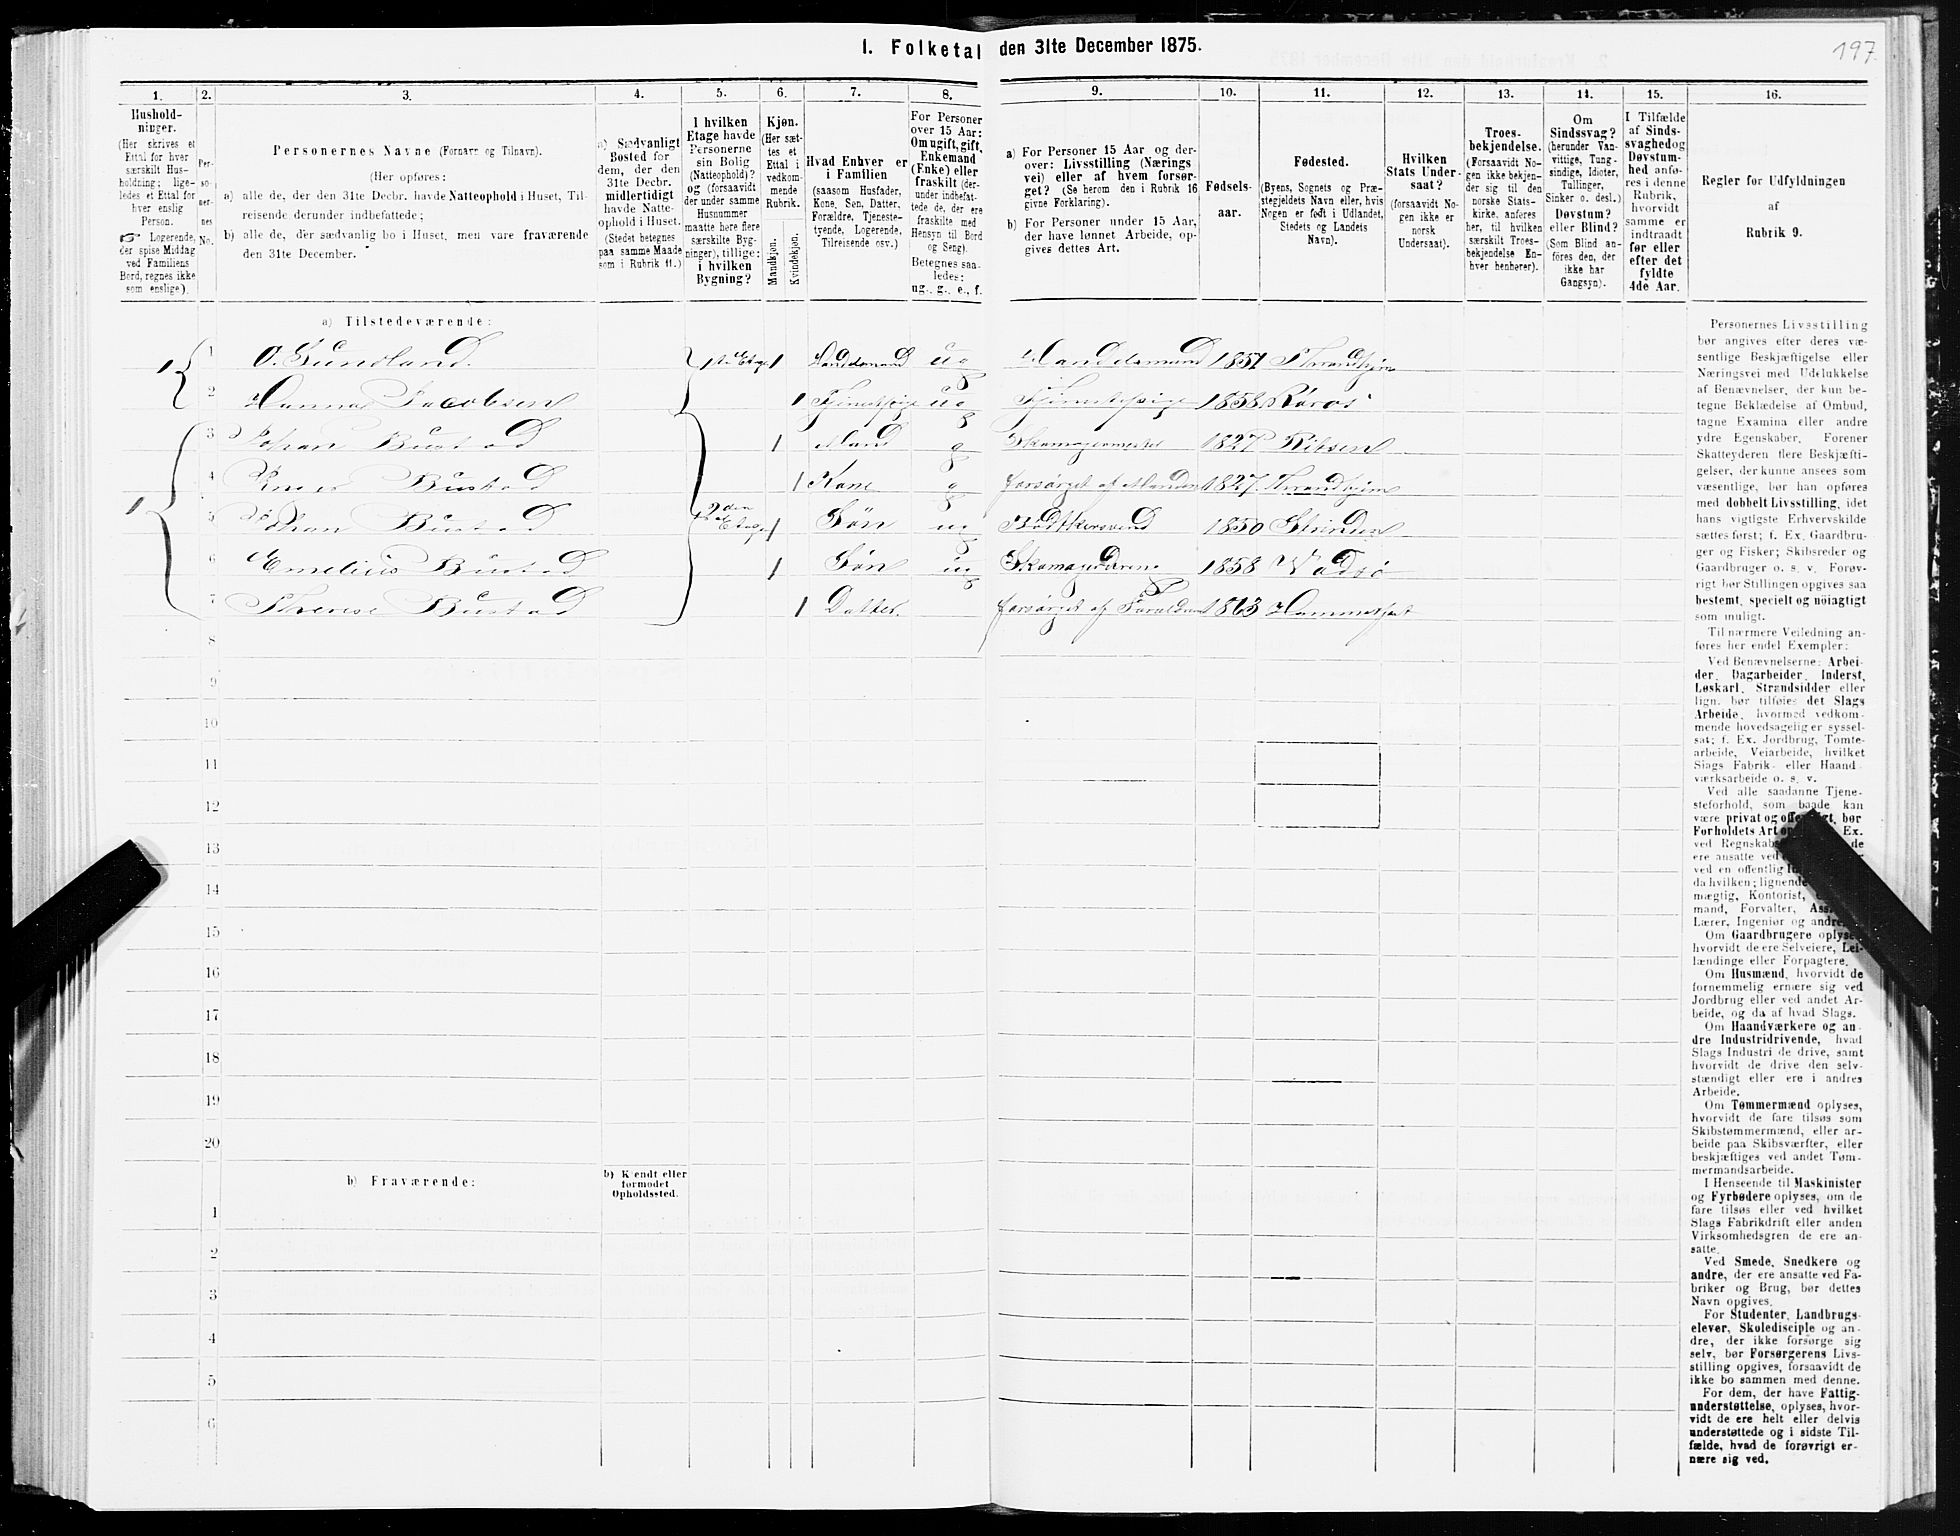 I. Folketal den 31te December 1875.
197
1. 2. 3. 4. 5. 6. 7. 8. 9. 10. 11. 12. 13. 14. 15. 16.
Hushold-
ninger.
(Her skrives et
Ettal for hver
særskilt Hus-
holdning; lige-
ledes et Ettal for
hver enslig
Person.
☞ Logerende,
der spise Middag
ved Familiens
Bord, regnes ikke
som enslige).
Per-
so-
ner-
nes
No.
Personernes Navne (Fornavn og Tilnavn).
(Her opføres:
a) alle de, der den 31te Decbr. havde Natteophold i Huset, Til-
reisende derunder indbefattede;
b) alle de, der sædvanlig bo i Huset, men vare fraværende
den 31te December.
a) Sædvanligt
Bosted for
dem, der den
31te Decbr.
midlertidigt
havde Natte-
ophold i Huset.
(Stedet betegnes
paa samme Maade
som i Rubrik 11.)
I hvilken
Etage havde
Personerne
sin Bolig
(Natteophold)?
og (forsaavidt
der under samme
Husnummer
maatte høre flere
særskilte Byg-
ninger), tillige:
i hvilken
Bygning?
Kjøn.
(Her sæt-
tes et
Ettal i
vedkom-
mende
Rubrik.
Mandkjøn.
Kvindekjøn.
Hvad Enhver er
i Familien
(saasom Husfader,
Kone, Søn, Datter,
Forældre, Tjeneste-
tyende, Logerende,
Tilreisende osv.)
For Personer
over 15 Aar:
Om ugift, gift,
Enkemand
(Enke) eller
fraskilt (der-
under indbefat-
tede de, der ere
fraskilte med
Hensyn til Bord
og Seng).
Betegnes saa-
ledes:
ug., g., e., f.
a) For Personer 15 Aar og der-
over: Livsstilling (Nærings
vei) eller af hvem forsør-
get? (Se herom den i Rubrik 16
givne Forklaring).
b) For Personer under 15 Aar,
der have lønnet Arbeide, op-
gives dettes Art.
Fødsels-
aar.
Fødested.
(Byens, Sognets og Præ-
stegjeldets Navn eller, hvis
Nogen er født i Udlandet,
Stedets og Landets
Navn).
Hvilken
Stats Under-
saat?
(forsaavidt No-
gen ikke er
norsk
Undersaat).
Troes-
bekjendelse.
(Forsaavidt No-
gen ikke bekjen-
der sig til den
norske Stats-
kirke, anføres
her, til hvilken
særskilt Troes-
bekjendelse En-
hver henhører).
Om
Sindssvag?
(herunder Van-
vittige, Tung-
sindige, Idioter,
Tullinger,
Sinker o. desl.)
Døvstum?
eller Blind?
(Som Blind an-
føres den, der
ikke har
Gangsyn).
I Tilfælde
af Sinds-
svaghedog
Døvstum-
hed anfø-
res i denne
Rubrik,
hvorvidt
samme er
indtraadt
før eller
efter det
fyldte
4de Aar.
Regler for Udfyldningen
af
Rubrik 9.
a) Tilstedeværende:
1 1 O. Sundland 1ste Etage 1 Handelsmand ug Handelsmand 1851 Throndhjem
2 Hanna Jacobsen 1 Tjenestepige ug Tjenestepige 1858 Røros
3 Johan Bustad 1 Mand g Skomagermester 1827
1 4 Bustad 1 Kone g forsørget af Manden 1827 Throndhjem
5 Johan Bustad 2den Etage 1 Søn ug Bødtkersvend 1850 Strinden
6 Emelius Bustad 1 Søn ug 1858 Vadsø
7 Therese Bustad 1 Datter forsørget af Forældrene 1863 Hammerfest
8
9
10
11
12
13
14
15
16
17
18
19
20
b) Fraværende:
b) Kjendt eller
formodet
Opholdssted.
1
2
3
4
5
6
Personernes Livsstilling
bør angives efter deres væ-
sentlige Beskjæftigelse eller
Næringsvei med Udelukkelse
af Benævnelser, der kun be-
tegne Beklædelse af Ombud,
tagne Examina eller andre
ydre Egenskaber. Forener
Skatteyderen flere Beskjæfti-
gelser, der kunne ansees som
væsentlige, bør han opføres
med dobbelt Livsstilling, idet
hans vigtigste Erhvervskilde
sættes først; f. Ex. Gaardbru-
ger og Fisker; Skibsreder og
Gaardbruger o. s. v. Forøv-
rigt bør Stillingen opgives saa
bestemt, specielt og nøiagtigt
som muligt.
Til nærmere Veiledning an-
føres her endel Exempler:
Ved Benævnelserne: Arbei-
der, Dagarbeider, Inderst,
Løskarl, Strandsidder eller
lign. bør tilføies det Slags
Arbeide, hvormed vedkom-
mende hovedsagelig er syssel-
sat; f. Ex. Jordbrug, Tomte-
arbeide, Veiarbeide, hvilket
Slags Fabrik- eller Haand-
værksarbeide o. s. v.
Ved alle saadanne Tjene-
steforhold, som baade kan
være privat og offentligt, bør
Forholdets Art Ex.
ved Regnskabs de
ere ansatte ved
ved en offentlig
da hvilken; lignende
mægtig, Kontorist,
mand, Forvalter, Ass
Lærer, Ingeniør og andre.
Om Gaardbrugere oplyses,
hvorvidt de ere Selveiere, Lei-
lændinge eller Forpagtere.
Om Husmænd, hvorvidt de
fornemmelig ernære sig ved
Jordbrug eller ved andet Ar-
beide, og da af hvad Slags.
Om Haandværkere og an-
dre Industridrivende, hvad
Slags Industri de drive, samt
hvorvidt de drive den selv-
stændigt eller ere i andres
Arbeide.
Om Tømmermænd oplyses,
hvorvidt de fare tilsøs som
Skibstømmermænd, eller ar-
beide paa Skibsværfter, eller
beskjæftiges ved andet Tøm-
mermandsarbeide.
I Henseende til Maskinister
og Fyrbødere oplyses, om de
fare tilsøs eller ved hvilket
Slags Fabrikdrift eller anden
Virksomhedsgren de ere an-
satte.
Ved Smede, Snedkere og
andre, der ere ansatte ved Fa-
briker og Brug, bør dettes
Navn opgives.
For Studenter, Landbrugs-
elever, Skoledisciple og an-
dre, der ikke forsørge sig
selv, bør Forsørgerens Livs-
stilling opgives, forsaavidt de
ikke bo sammen med denne.
For dem, der have Fattig-
understøttelse, oplyses, hvor-
vidt de ere helt eller delvis
understøttede og i sidste Til-
fælde, hvad de forøvrigt er-
nære sig ved.